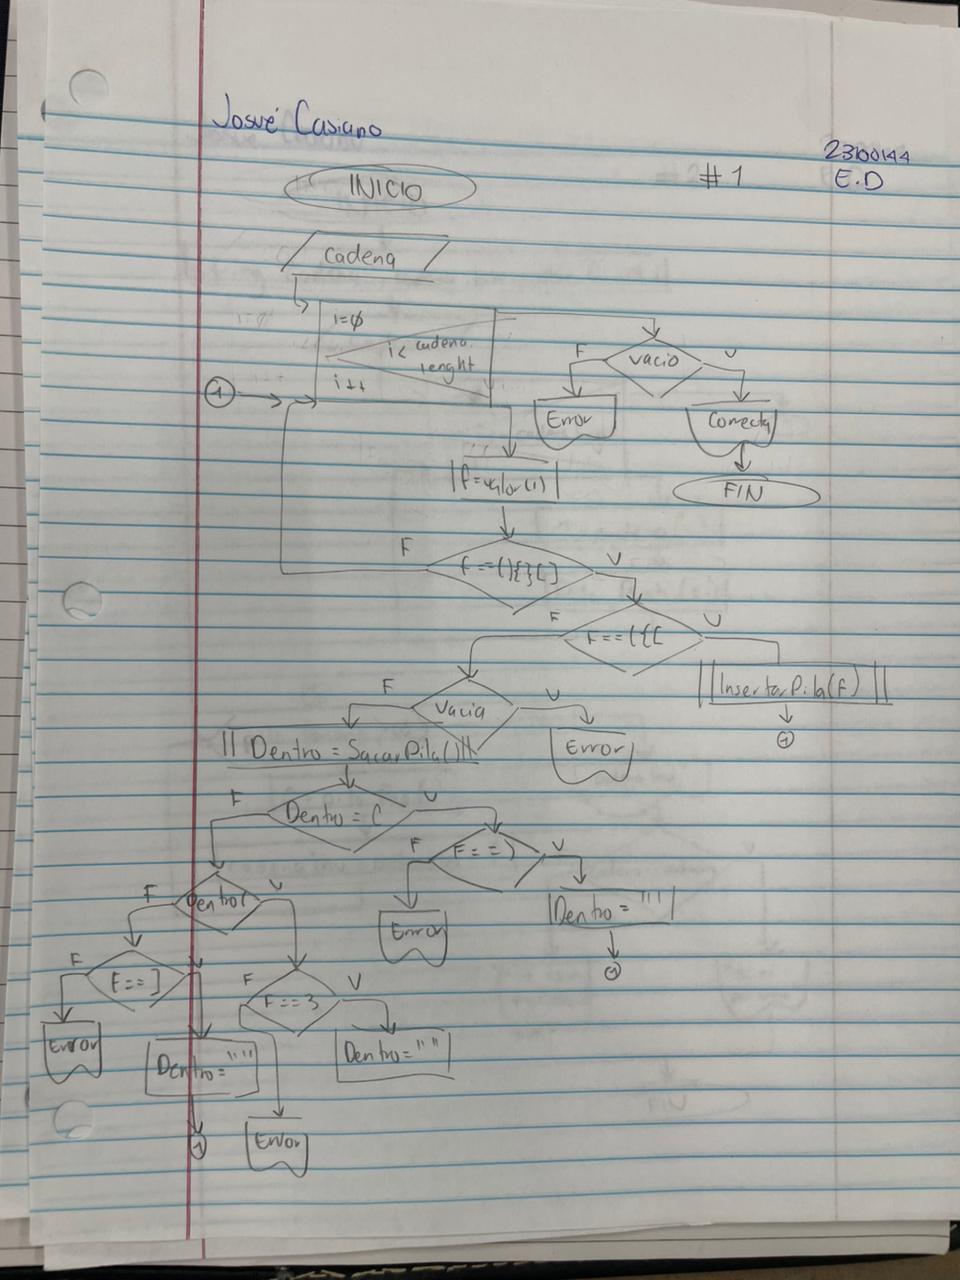 Josué Casiano
23100144
# 1
E.D
INICIO
cadena
i=0
i< cadena.
lenght
i++
1
F
vacio
V
Error
Correcta
FIN
f=valor(i)
F
f==(){}[]
V
F
F==({[
V
InsertarPila(F)
1
F
Vacia
V
Error
Dentro = SacarPila()
F
Dentro = (
V
F
F==)
V
Error
Dentro = ""
1
F
Dentro{
V
F
F==]
V
Error
Dentro=""
1
F
F==}
V
Dentro=""
Error